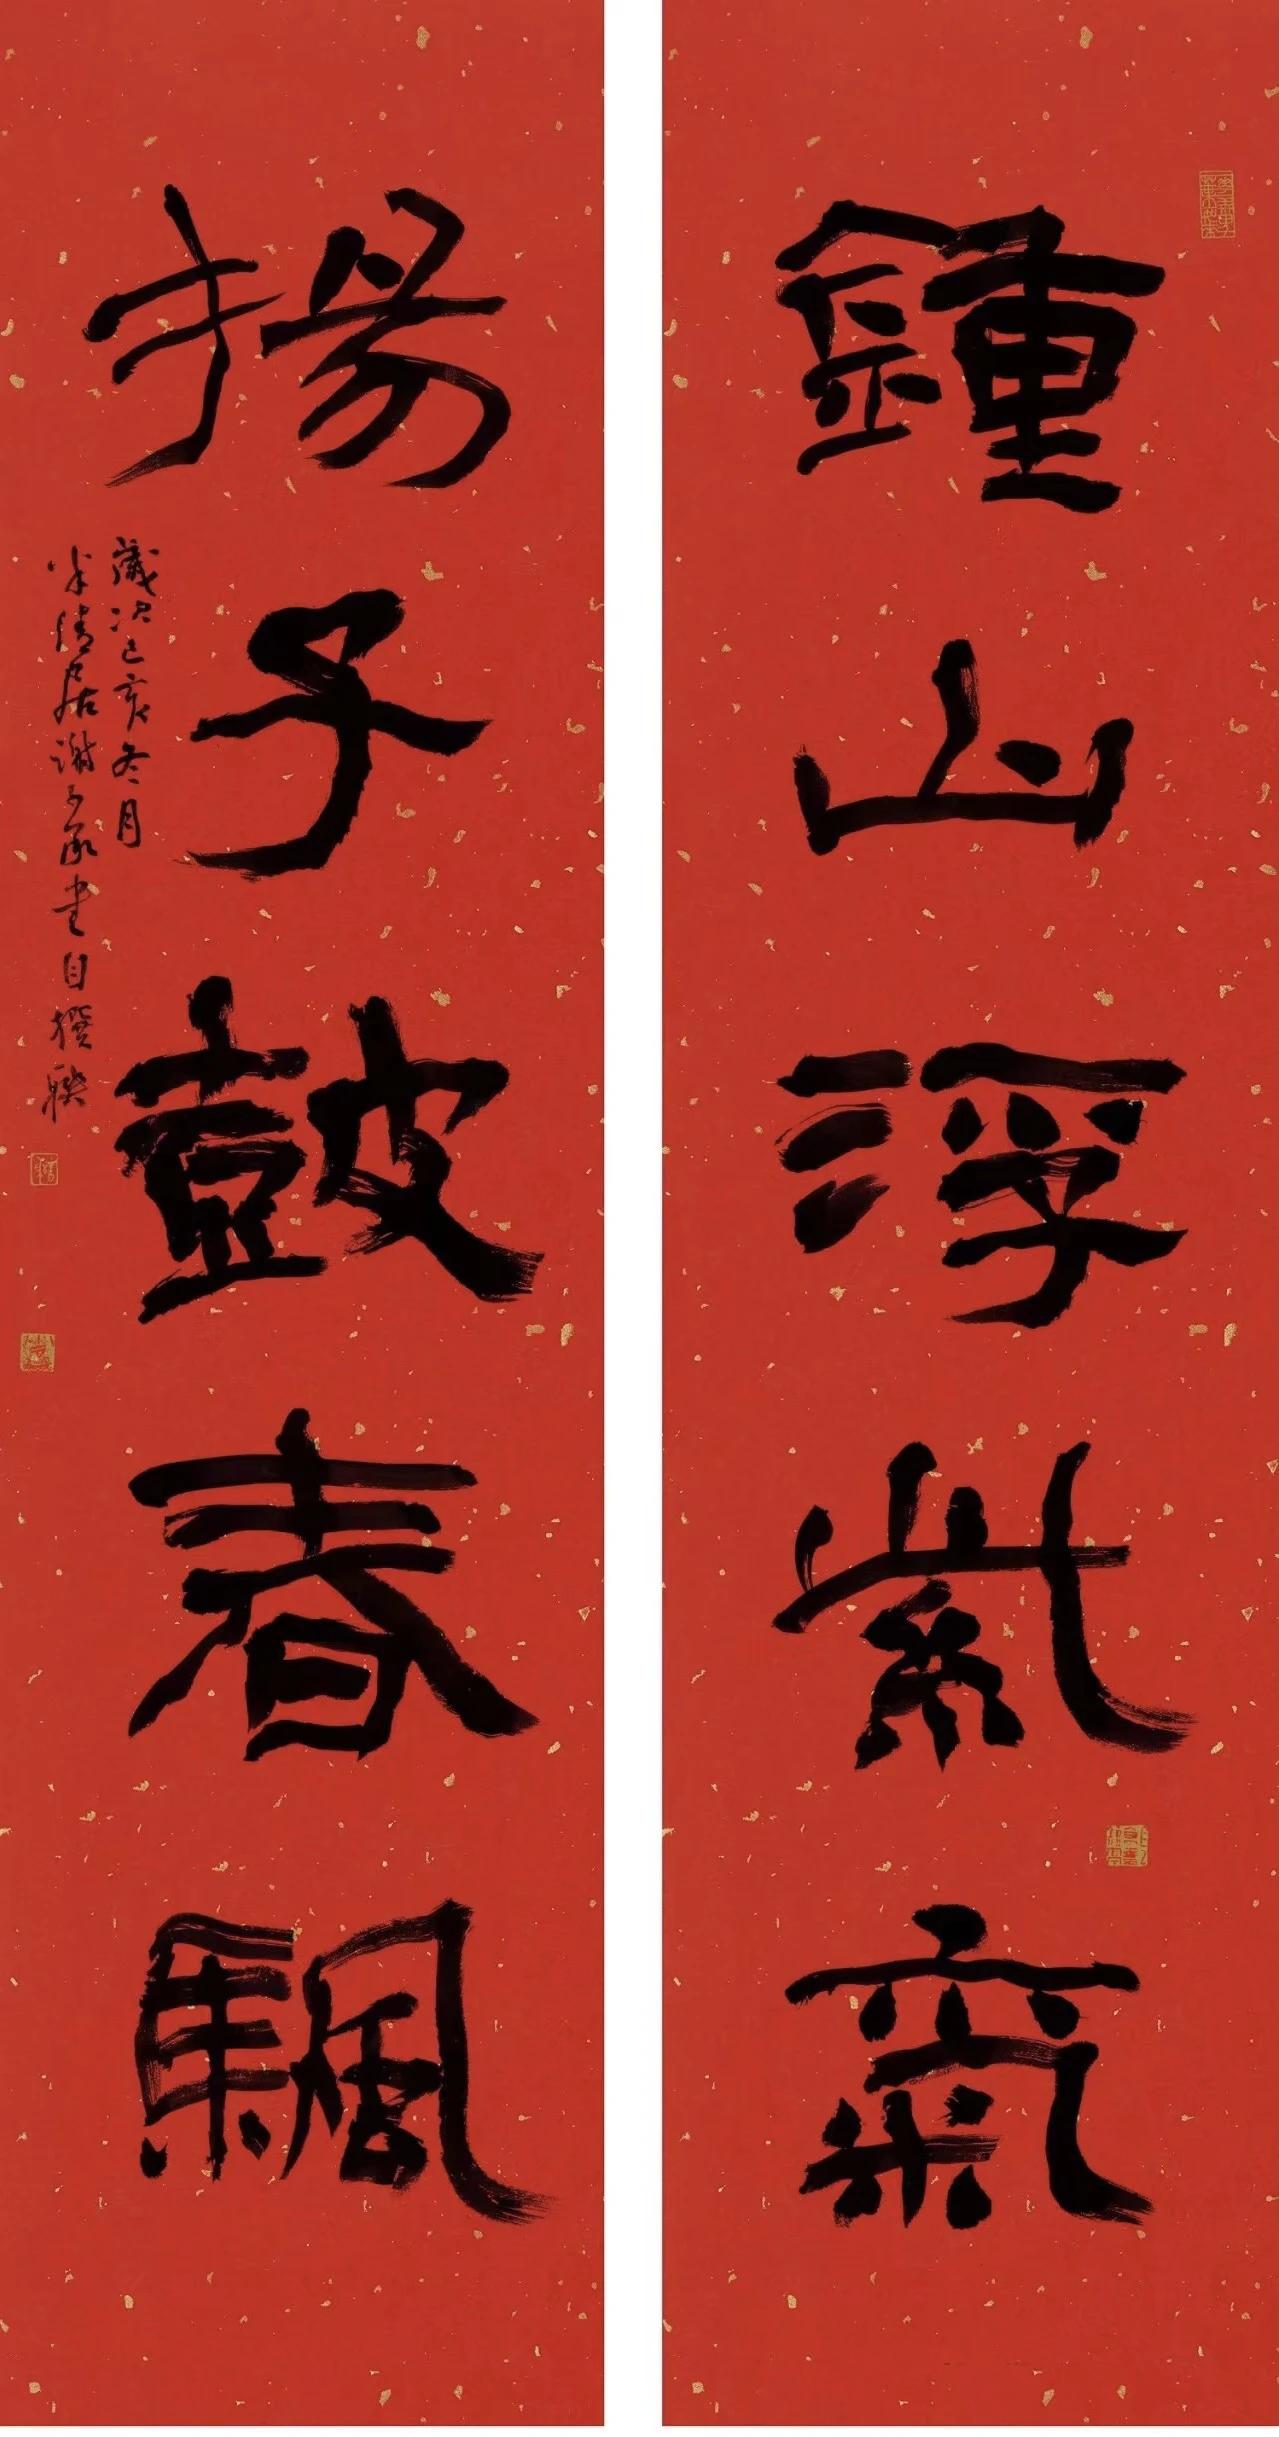 鍾山浮紫氣
揚子皷春颿
歲次己亥冬月
半清居謝少承書自撰聯